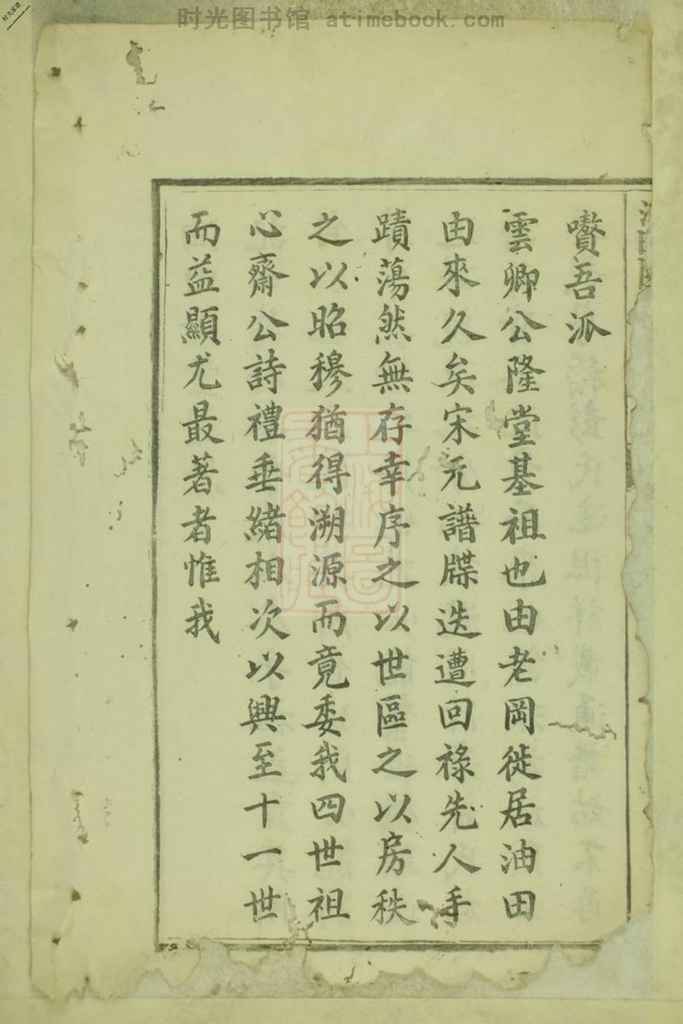 时光图书馆 atimebook.com
嚽吾派
雲卿公隆堂基祖也由老岡徙居油田
由來久矣宋元譜牒迭遭回祿先人手
蹟蕩然無存幸序之以世區之以房秩
之以昭穆猶得溯源而竟委我四世祖
心齋公詩禮垂緒相次以興至十一世
而益顯尤最著者惟我